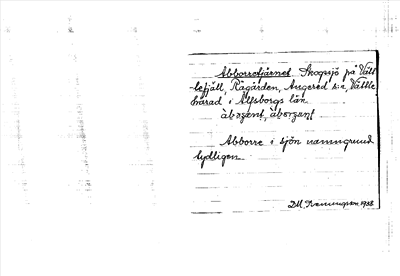 Abborretjärnet. Skogssjö på Vätt
lefjäll, Rågården, Angered s:n, Vättle
härad i Älfsborgs län.
àbɷʀant, åbɷʀant
Abborre i sjön namngrund
tydligen.
1938